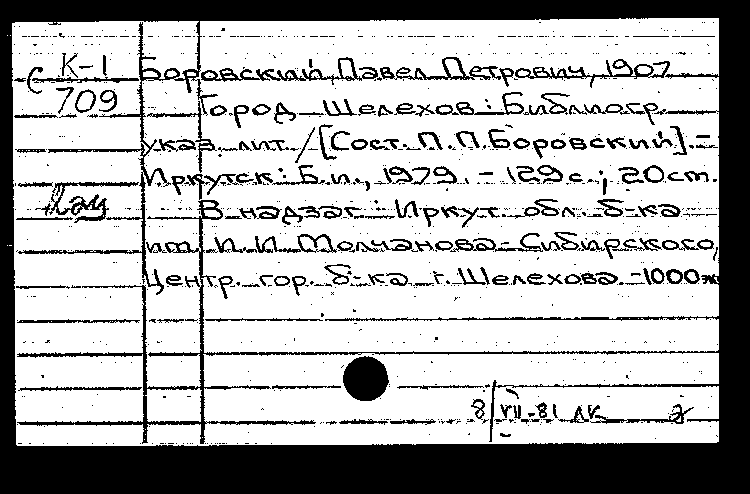 С К-1 Боровский, Павел Петрович, 1907
709 Город Шелехов: Библиогр.
указ. лит. / [Сост. П.П.Боровский]. -
Иркутск: Б.и., 1979. - 129с.; 20см.
В надзаг.: Иркут. обл. б-ка
им. И.И. Молчанова-Сибирского,
Центр. гор. б-ка г. Шелехова. -1000э
8/VII-81 лк 2